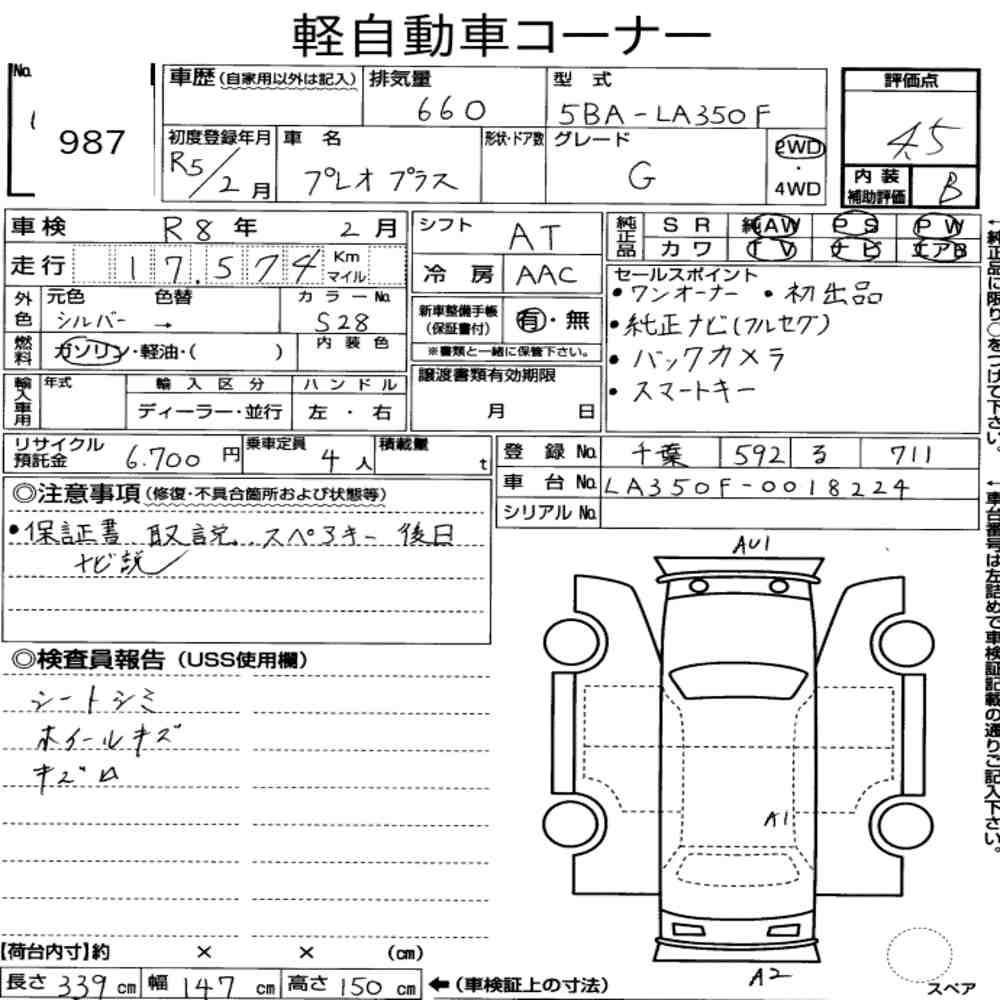 軽自動車コーナー
No.
987
車歴(自家用以外は記入)
排気量
660
型式
5BA-LA350F
評価点
4.5
初度登録年月
R5/2月
車名
プレオプラス
形状・ドア数
グレード
G
2WD
・
4WD
内装
補助評価
B
車検
R8年 2月
シフト
AT
純正品
SR 純AW PS PW
カワ TV ナビ エアB
走行
17,574 Km マイル
冷房
AAC
セールスポイント
・ワンオーナー ・初出品
・純正ナビ(フルセグ)
・バックカメラ
・スマートキー
外色
元色 色替
シルバー →
カラーNo.
S28
新車整備手帳
(保証書付)
有・無
※書類と一緒に保管下さい。
燃料
ガソリン・軽油・( )
内装色
輸入車用
年式
輸入区分
ディーラー・並行
ハンドル
左・右
譲渡書類有効期限
月 日
リサイクル
預託金
6.700円
乗車定員
4人
積載量
t
登録No.
千葉 592 る 711
車台No.
LA350F-0018224
シリアルNo.
◎注意事項(修復・不具合箇所および状態等)
・保証書 取説 スペアキー 後日
ナビ説
◎検査員報告(USS使用欄)
シートシミ
ホイールキズ
キズ凹
AU1
A1
A2
【荷台内寸】約 × × (cm)
長さ 339 cm 幅 147 cm 高さ 150 cm ←(車検証上の寸法)
スペア
←純正品に限り○をつけて下さい。
←車台番号は左詰めで車検証記載の通りご記入下さい。